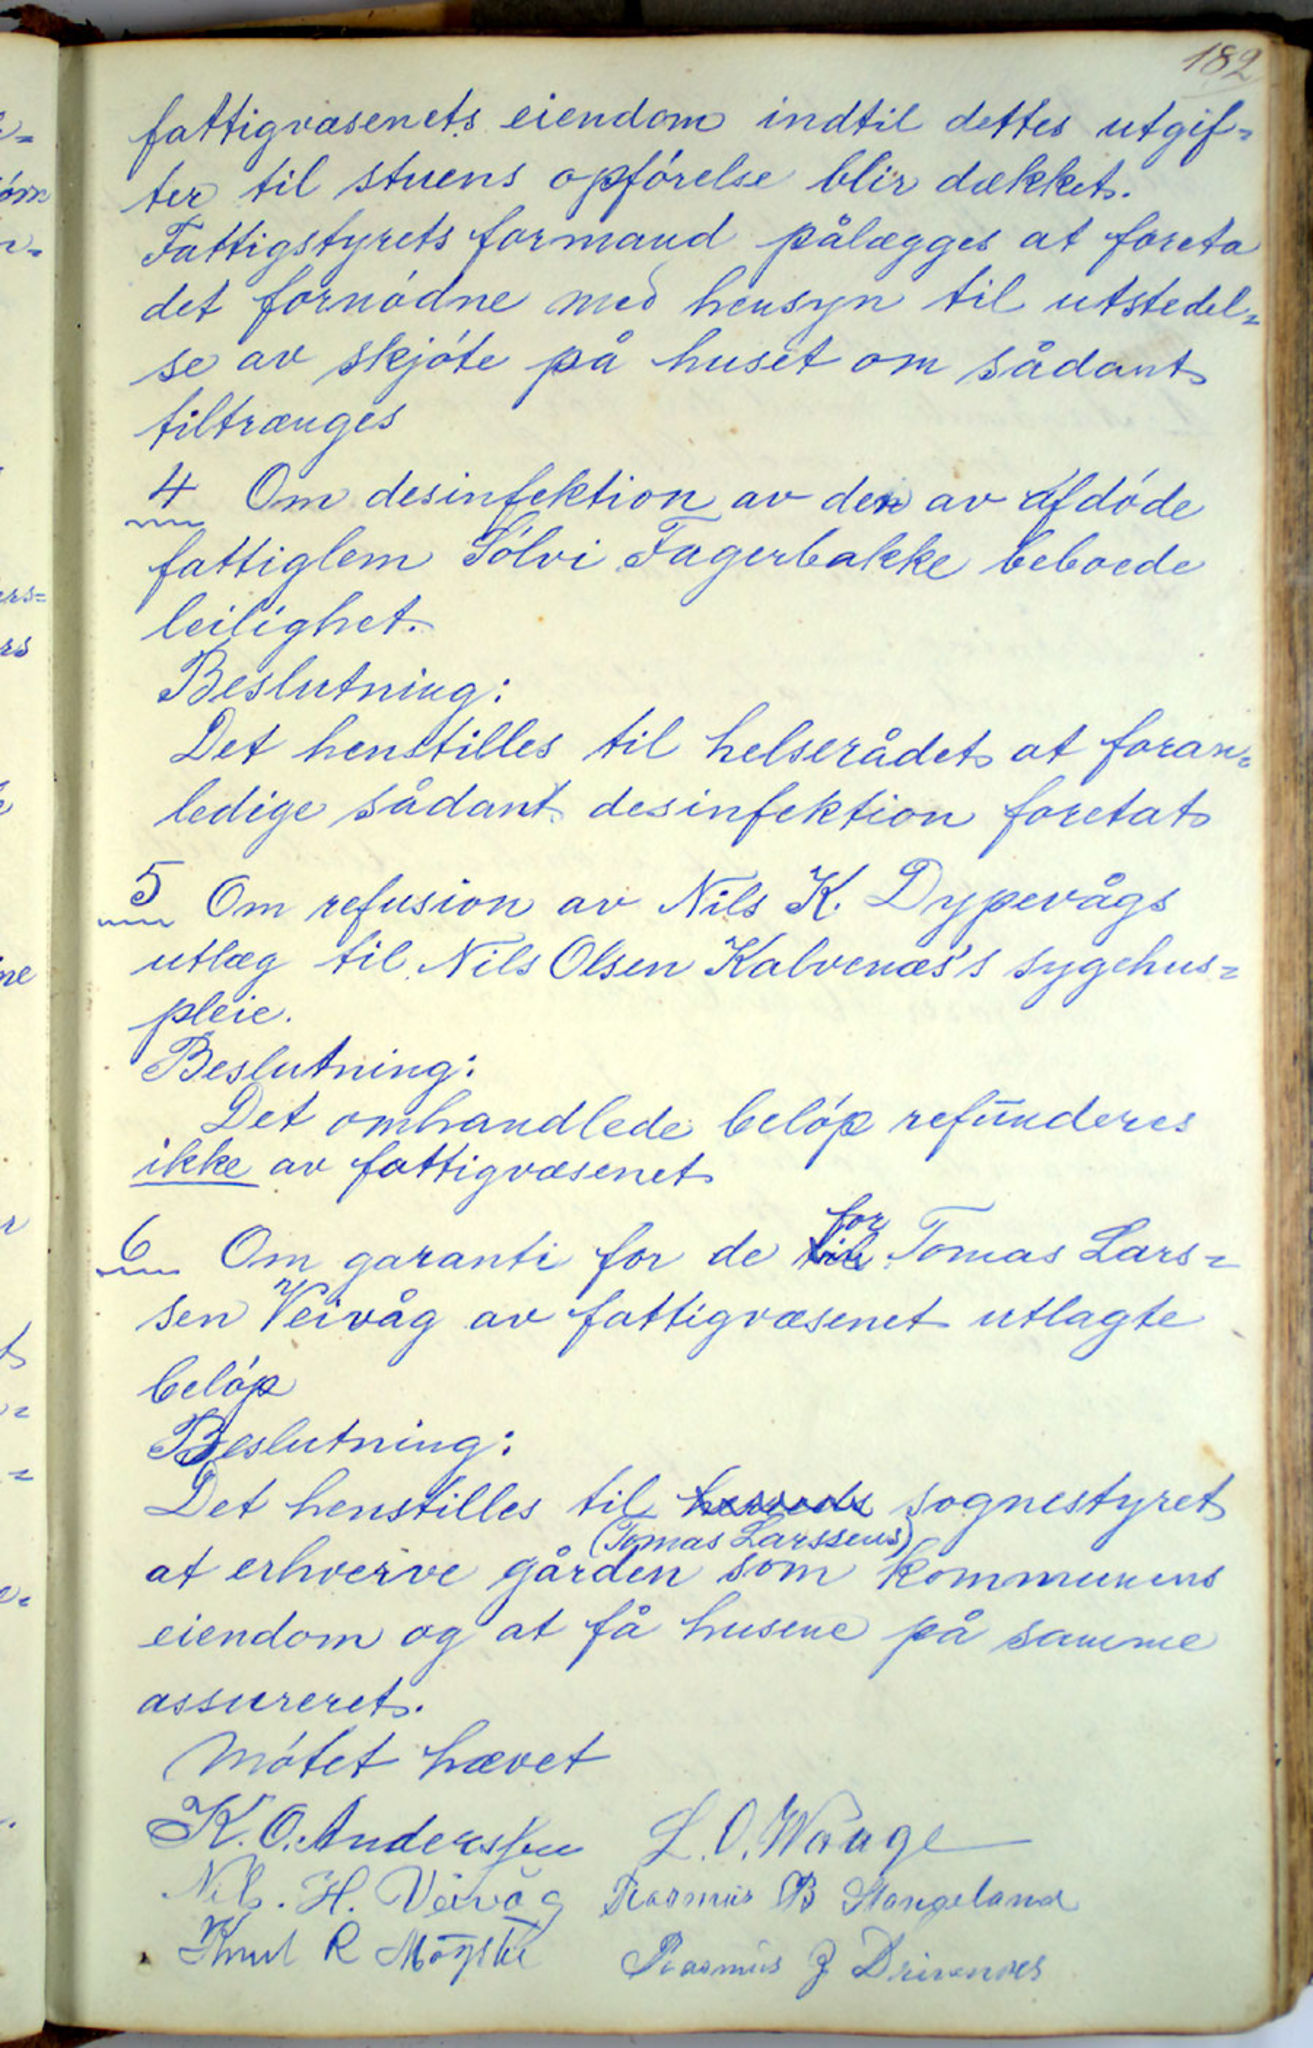 182
fattigvæsenets eiendom indtil dettes utgif=
ter til stuens opførelse blir dækket.
Fattigstyrets formand pålægges at foreta
det fornødne med hensyn til utstedel=
se av skjøte på huset om sådant
tiltrænges
4 Om desinfektion av den av afdøde
fattiglem Sølvi Fagerbakke beboede
leilighet.
Beslutning:
Det henstilles til helserådet at foran=
ledige sådant desinfektion foretat
5 Om refusion av Nils K. Dypevågs
utlæg til Nils Olsen Kalvenæs's sygehus=
pleie.
Beslutning:
Det omhandlede beløp refunderes
ikke av fattigvæsenet
for
6 Om garanti for de til Tomas Lars=
sen Veivåg av fattigvæsenet utlagte
beløp
Beslutning:
Det henstilles til herreds sognestyret
(Tomas Larssens)
at erhverve gården som kommunens
eiendom og at få husene på samme
assureret.
Møtet hævet
K. O. Anderssen L. O. Waage
Nils. H. Veivåg Rasmus B Stangeland
Knut R Møgster Rasmus J Drivenæs